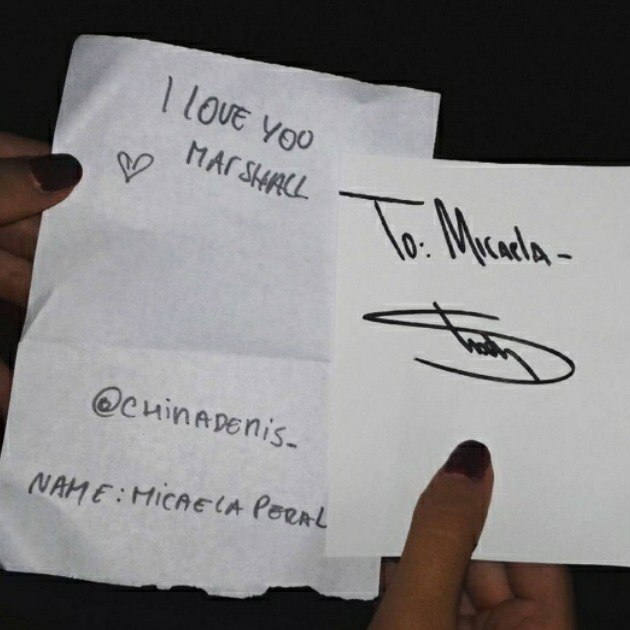 I LOVE YOU
MARSHALL
@CHINADENIS_
NAME: MICAELA PERAL
To: MICAELA -